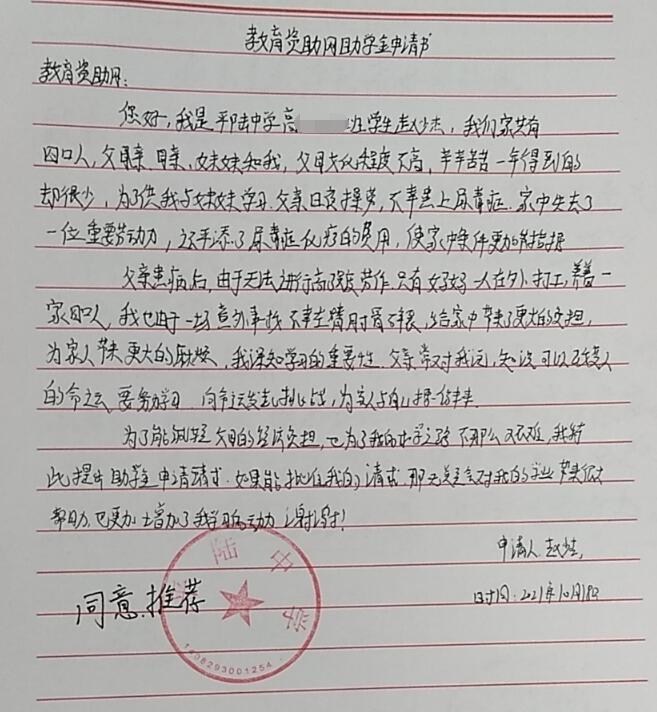 教育资助网助学金申请书
教育资助网:
您好,我是平陆中学高 班学生赵少杰,我们家共有
四口人,父母亲、妹妹和我,父母文化程度不高,辛辛苦苦一年得到的
却很少,为了供我与妹妹学习.父亲日夜操劳,不幸患上尿毒症.家中失去了
一位重要劳动力,又平添了尿毒症化疗的费用,使家中条件更加拮据
父亲患病后,由于无法进行高强度劳作.只有妈妈一人在外打工,养着一
家四口人,我也由于一场意外事故不幸左臂肘骨 ,给家中带来了更大的负担,
为家人带来更大的麻烦,我深知学习的重要性.父亲常对我说,知识可以改变人
的命运,要努力学习.向命运发起挑战,为 人与自己
为了能减轻父母的经济负担,也为了我的求学之路不那么艰难,我特
此提出助学金申请请求.如果能批准我的请求.那无疑会对我的学业带来很大
帮助.也更加增加了我学习的动力 谢谢!
申请人.赵少杰,
同意推荐
日时间:2021年10月18日
平陆中学
1408293001254